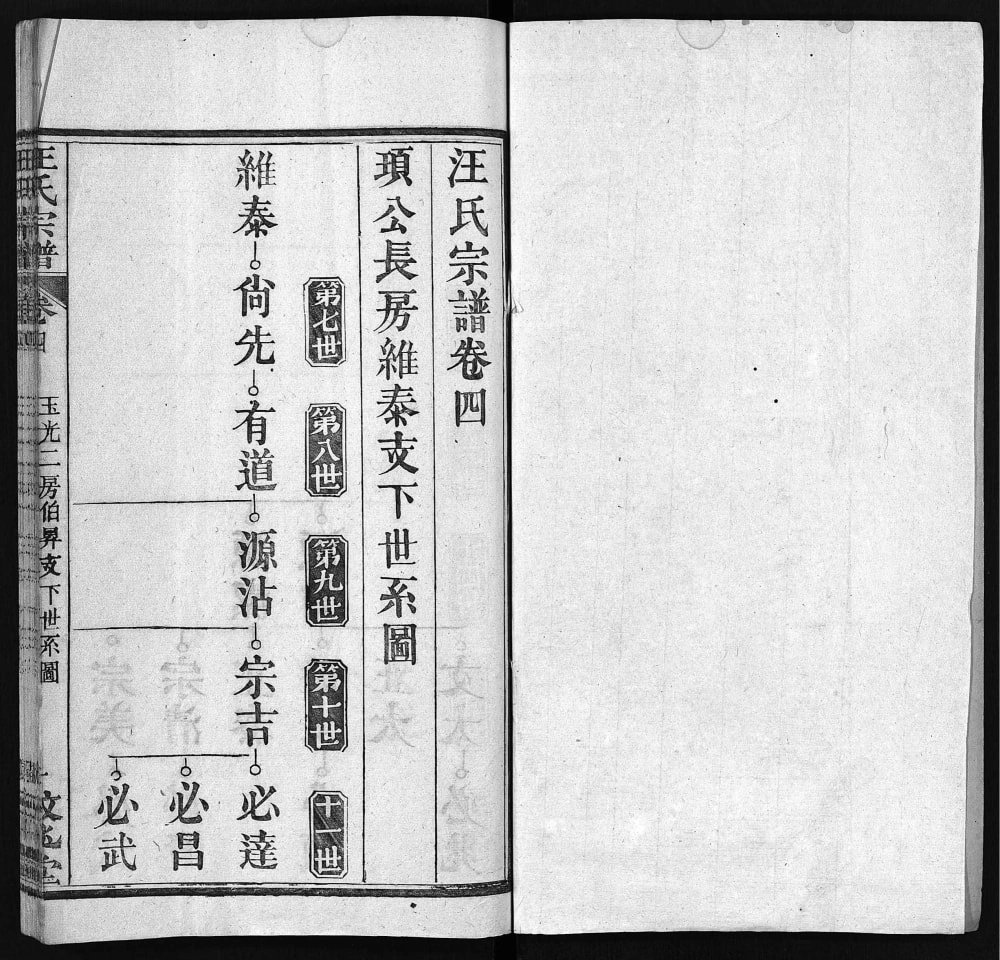 汪氏宗譜卷四
頊公長房維泰支下世系圖
第七世
第八世
第九世
第十世
十一世
維泰
尙先
有道
源沾
宗吉
必達
必昌
必武
汪氏宗譜
卷四
玉光二房伯昇支下世系圖